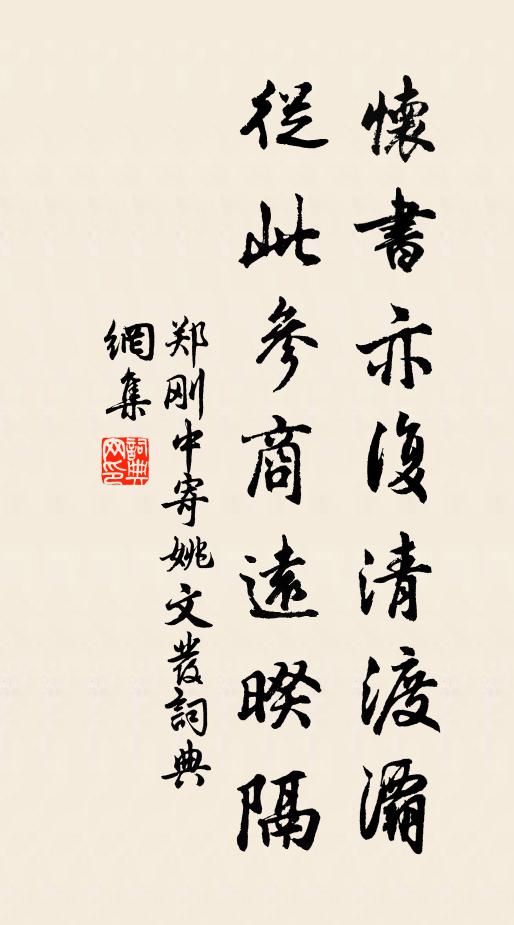 懷書亦復清渡灞
從此參商遠暌隔
郑刚中寄姚文發詞典
網集
詞典網印